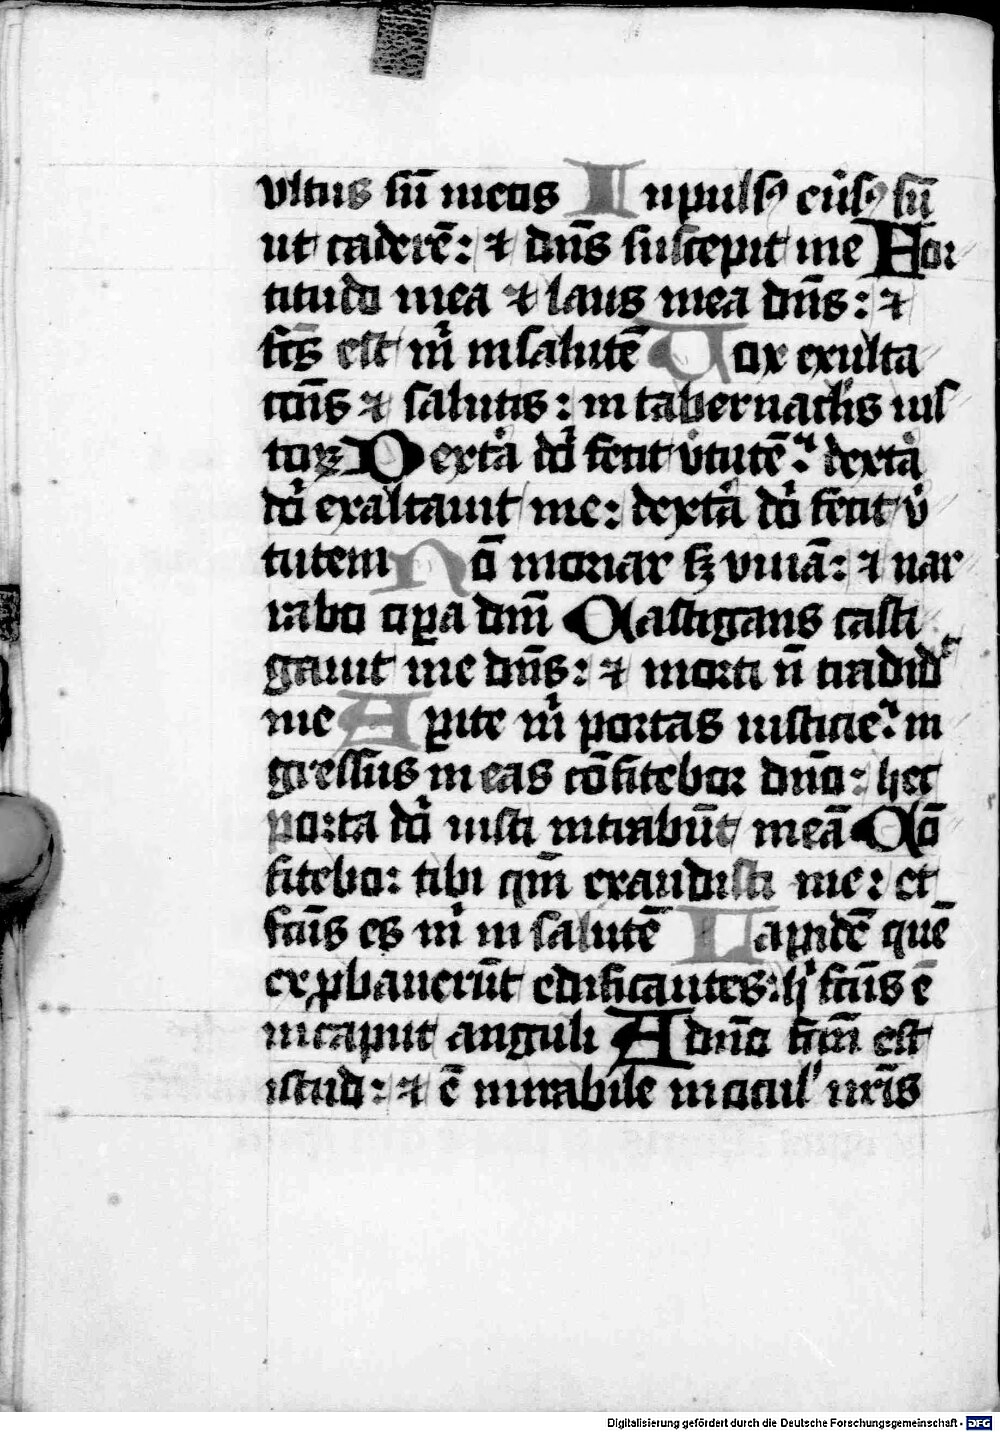 vltus sū meos Inpulsꝰ eūsꝰ sū
ut caderē: ⁊ dn̄s suscepit me For
titudo mea ⁊ laus mea dn̄s: ⁊
fc̄s est m̄ in salutē Vox exulta
cōnis ⁊ salutis: in tabernac̄lis ius
toꝝ Dextͣa dī fecit v̄tutē: dextͣa
dī exaltauit me: dextͣa dī fecit v̄
tutem Nō moriar sꝫ viuā: ⁊ nar
rabo oꝑa dn̄i Castigans casti
gauit me dn̄s: ⁊ morti n̄ tradidͭ
me Aꝑite m̄ portas iusticie: in
gressus in eas cōfitebor dn̄o: hec
porta dī iusti intrabūt in eā Cō
fitebor tibi qm̄ exaudisti me: et
fc̄us es m̄ in salutē Lapidē quē
exꝓbauerūt edificantes: hͥ fc̄us ē
in caput anguli A dn̄o fc̄m est
istud: ⁊ ē mirabile in ocul' nr̄is
Digitalisierung gefördert durch die Deutsche Forschungsgemeinschaft - DFG